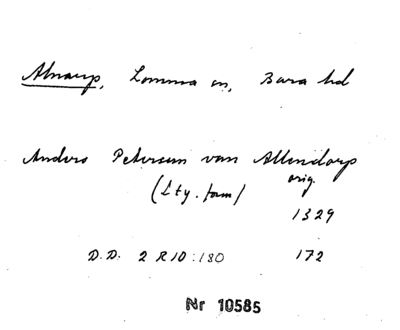 Alnarp, Lomma sn, Bara hd
Anders Petersson van Allendorp
orig.
(Lty. fam)
1329
D.D. 2 R10:180 172
Nr 10585